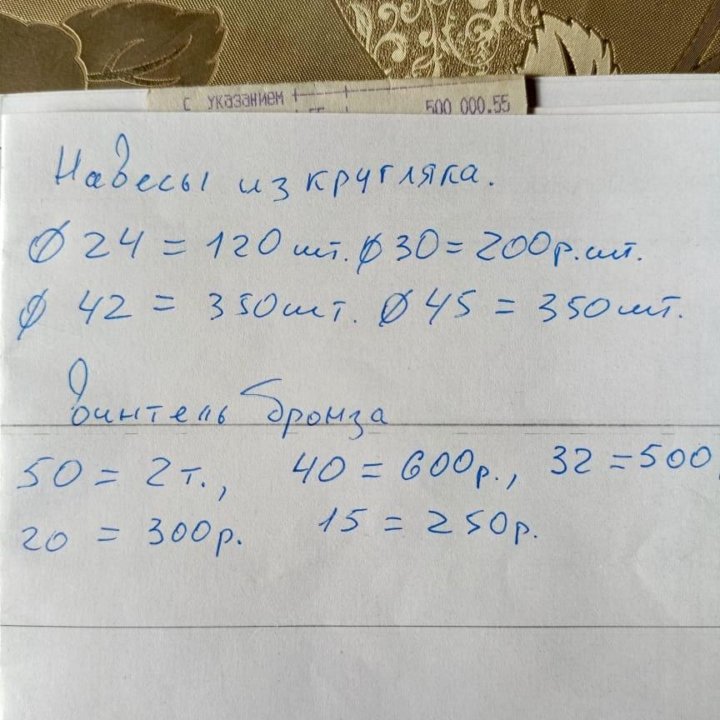 с указанием 500 000.55
Навесы из кругляка.
Ø 24 = 120 шт. Ø 30 = 200р.шт.
Ø 42 = 350шт. Ø 45 = 350шт.
Винтель бронза
50 = 2т., 40 = 600р., 32 = 500
20 = 300р. 15 = 250р.